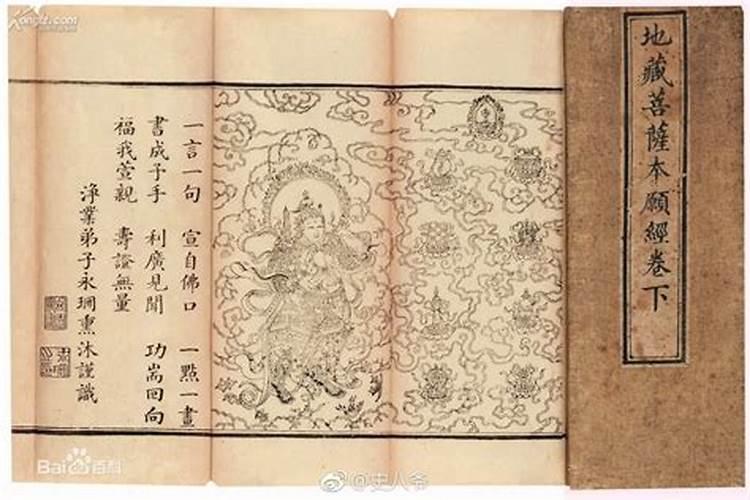 地藏菩薩本願經卷下
一言一句 宣自佛口 一點一畫
書成予手 利廣見聞 功耑回向
福我萱親 壽證無量
淨業弟子永熏沐謹識
Kongfz.com
Bai百科
@史人爷